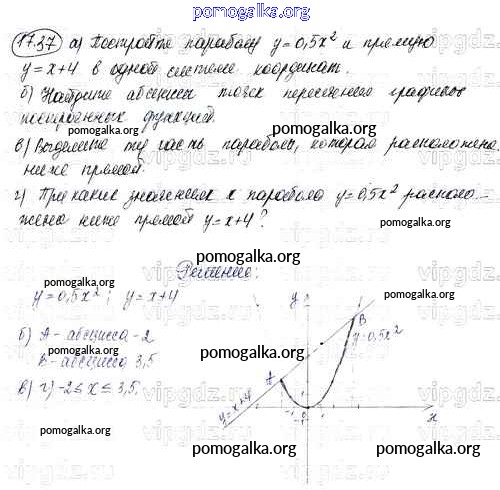 pomogalka.org
17.37 а) Постройте параболу y=0,5x² и прямую
y=x+4 в одной системе координат.
pomogalka.org
б) Найдите абсциссы точек пересечения графиков
построенных функций.
pomogalka.org
pomogalka.org
в) Выделите ту часть параболы, которая расположена
ниже прямой.
pomogalka.org
г) При каких значениях x парабола y=0,5x² располо-
жена ниже прямой y=x+4?
pomogalka.org
pomogalka.org
Решение:
pomogalka.org
y=0,5x²; y=x+4
pomogalka.org
y
б) A - абсцисса -2
B
y=0,5x²
pomogalka.org
B - абсцисса 3,5
A
в) г) -2≤x≤3,5.
y=x+4
x
pomogalka.org
pomogalka.org
pomogalka.org
vipgdz.ru